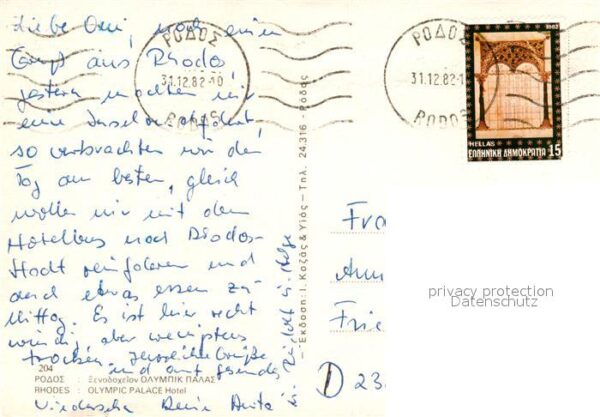 Liebe Omi, noch einen
Gruß aus Rhodos
gestern machten wir
eine Inselrundfahrt,
so verbrachten wir den
Tag am besten, gleich
wollen wir mit dem
Hotelbus nach Rhodos-
Stadt reinfahren und
dort etwas essen zu
Mittag. Es ist hier recht
windig, aber wenigstens
trocken, Herzliche Grüße
und auf gesundes
Wiedersehn Deine Anita
u.
204
ΡΟΔΟΣ : Ξενοδοχείον ΟΛΥΜΠΙΚ ΠΑΛΑΣ
RHODES : OLYMPIC PALACE Hotel
Εκδοση: Ι. Κοζάς & Υιός – Τηλ. 24.316 - Ρόδος
ΡΟΔΟΣ
31.12.82-10
RODOS
ΡΟΔΟΣ
31.12.82-1
RODOS
1982
HELLAS
ΕΛΛΗΝΙΚΗ ΔΗΜΟΚΡΑΤΙΑ 15
Fra
Ann
Frie
D 23
privacy protection
Datenschutz